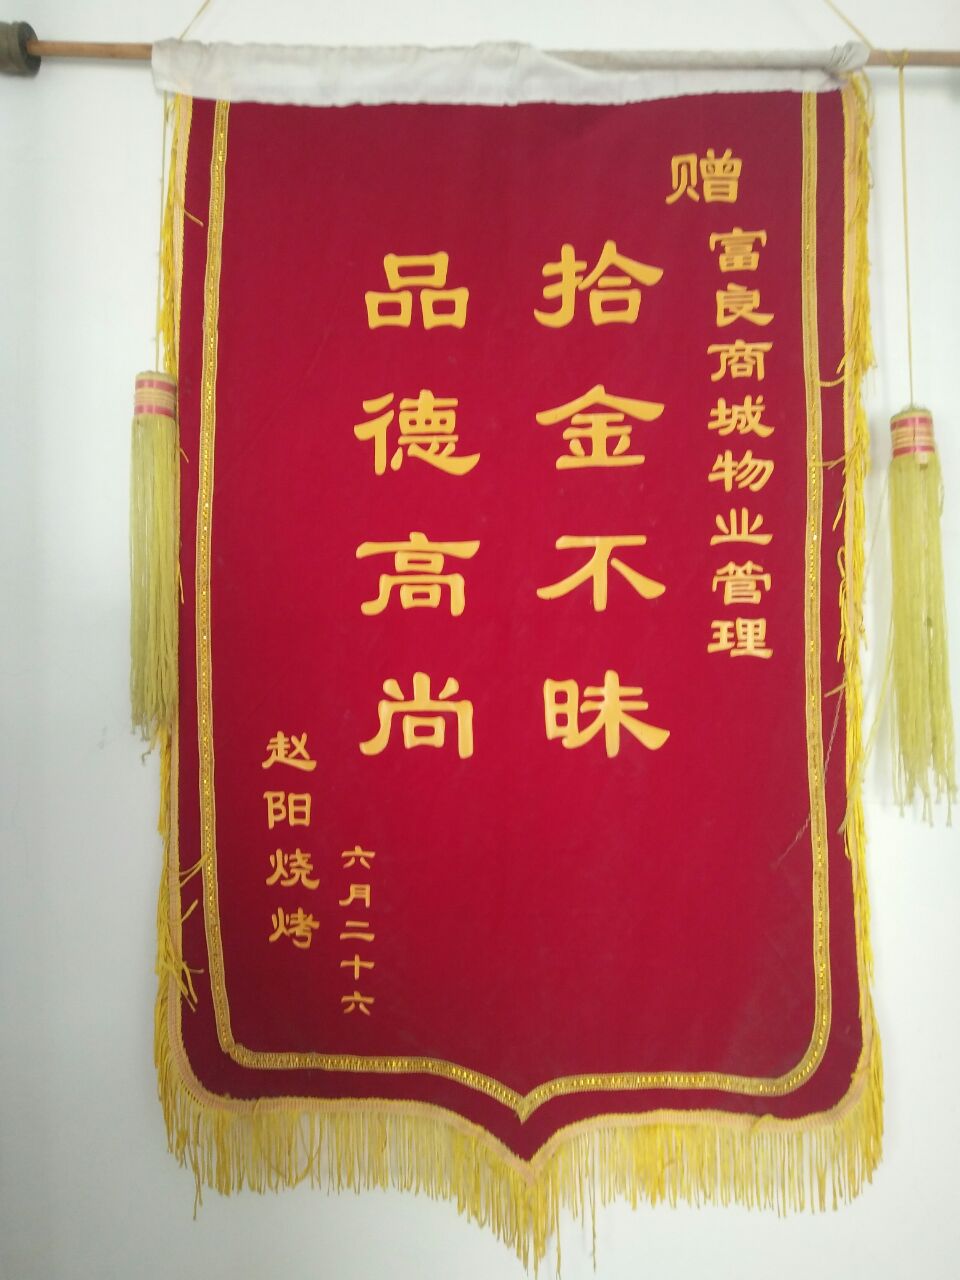 赠
富良商城物业管理
拾金不昧
品德高尚
六月二十六
赵阳烧烤